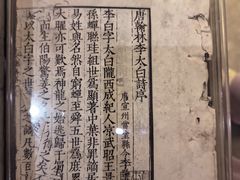 唐翰林李太白詩序
唐宣州當塗縣令李
李白字太白隴西成紀人涼武昭王暠
孫蟬聯珪組世為顯著中葉非罪謫
易姓與名然自窮蟬至舜五世為庶
大曜亦可歎焉神龍之始逃歸于
而生伯陽驚姜之夕長庚
太白字之世